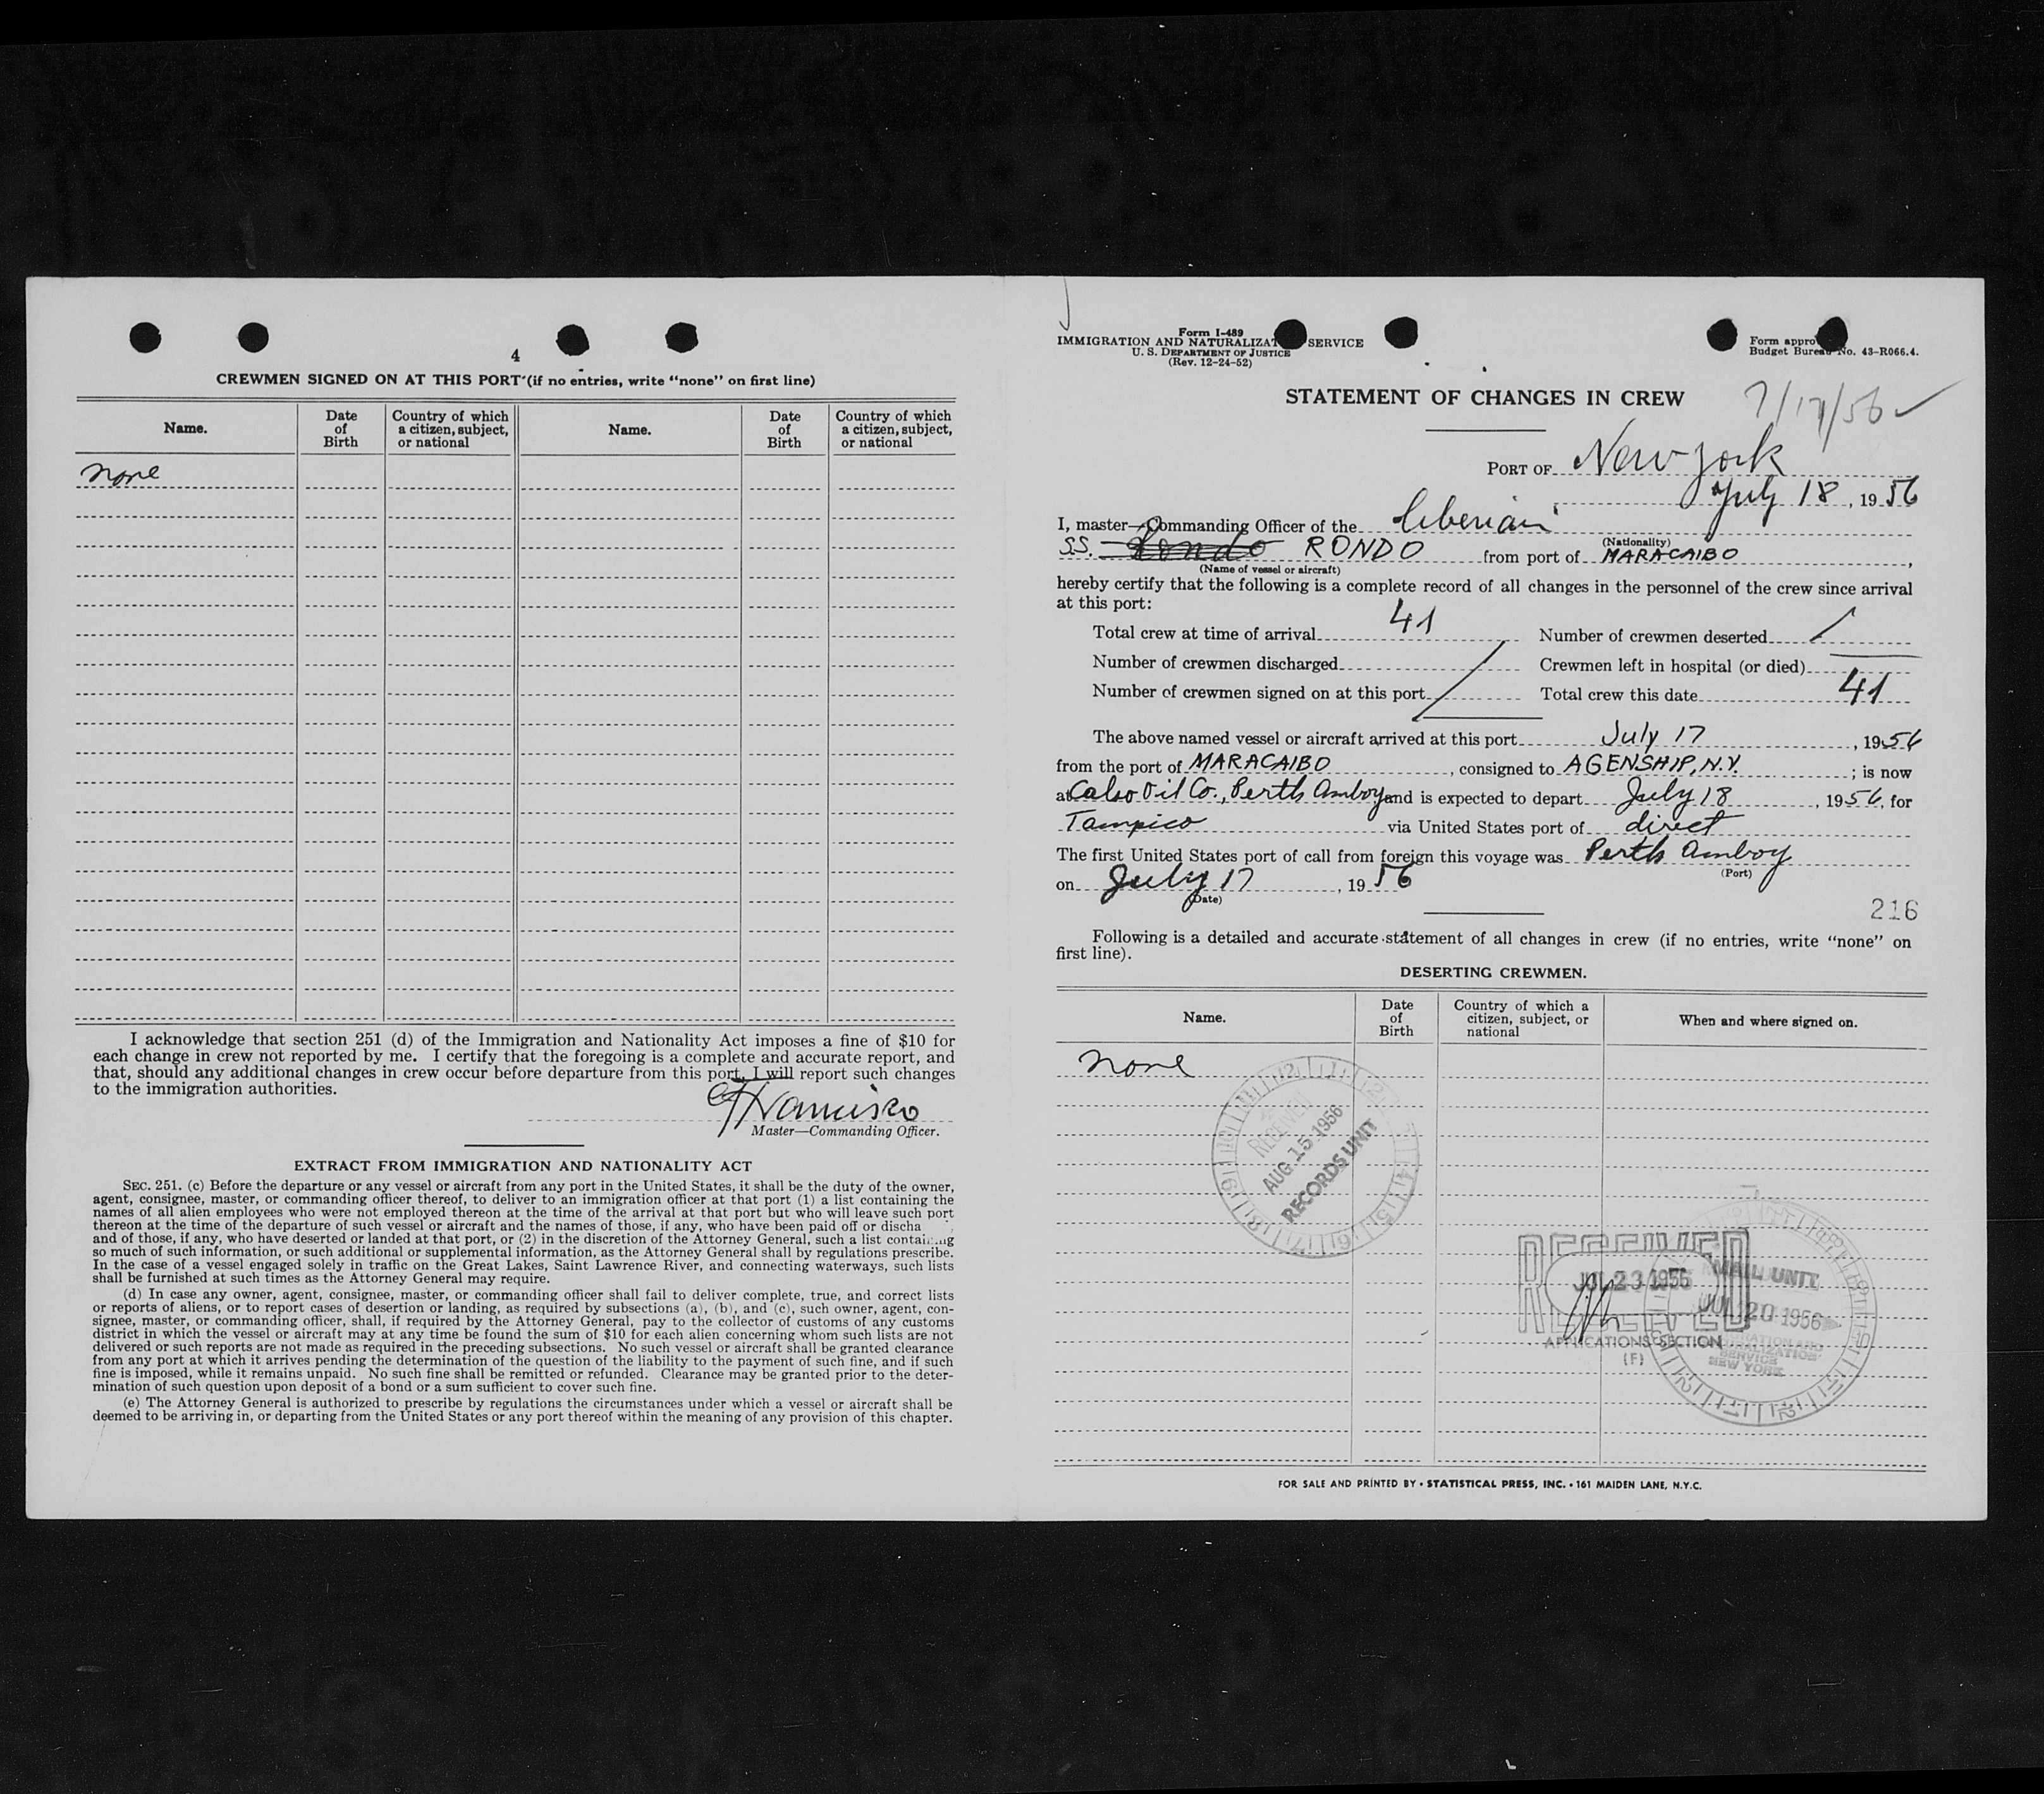 4
CREWMEN SIGNED ON AT THIS PORT (if no entries, write "none" on first line)
Name. Date of Birth Country of which a citizen, subject, or national Name. Date of Birth Country of which a citizen, subject, or national
none
I acknowledge that section 251 (d) of the Immigration and Nationality Act imposes a fine of $10 for
each change in crew not reported by me. I certify that the foregoing is a complete and accurate report, and
that, should any additional changes in crew occur before departure from this port, I will report such changes
to the immigration authorities.
Master—Commanding Officer.
EXTRACT FROM IMMIGRATION AND NATIONALITY ACT
SEC. 251. (c) Before the departure or any vessel or aircraft from any port in the United States, it shall be the duty of the owner,
agent, consignee, master, or commanding officer thereof, to deliver to an immigration officer at that port (1) a list containing the
names of all alien employees who were not employed thereon at the time of the arrival at that port but who will leave such port
thereon at the time of the departure of such vessel or aircraft and the names of those, if any, who have been paid off or discha
and of those, if any, who have deserted or landed at that port, or (2) in the discretion of the Attorney General, such a list containing
so much of such information, or such additional or supplemental information, as the Attorney General shall by regulations prescribe.
In the case of a vessel engaged solely in traffic on the Great Lakes, Saint Lawrence River, and connecting waterways, such lists
shall be furnished at such times as the Attorney General may require.
(d) In case any owner, agent, consignee, master, or commanding officer shall fail to deliver complete, true, and correct lists
or reports of aliens, or to report cases of desertion or landing, as required by subsections (a), (b), and (c), such owner, agent, con-
signee, master, or commanding officer, shall, if required by the Attorney General, pay to the collector of customs of any customs
district in which the vessel or aircraft may at any time be found the sum of $10 for each alien concerning whom such lists are not
delivered or such reports are not made as required in the preceding subsections. No such vessel or aircraft shall be granted clearance
from any port at which it arrives pending the determination of the question of the liability to the payment of such fine, and if such
fine is imposed, while it remains unpaid. No such fine shall be remitted or refunded. Clearance may be granted prior to the deter-
mination of such question upon deposit of a bond or a sum sufficient to cover such fine.
(e) The Attorney General is authorized to prescribe by regulations the circumstances under which a vessel or aircraft shall be
deemed to be arriving in, or departing from the United States or any port thereof within the meaning of any provision of this chapter.
Form I-489
IMMIGRATION AND NATURALIZAT SERVICE
U. S. DEPARTMENT OF JUSTICE
(Rev. 12-24-52)
Form appro
Budget Bureau No. 43-R066.4.
STATEMENT OF CHANGES IN CREW
7/17/56
PORT OF New York
July 18, 1956
I, master—Commanding Officer of the Liberian
(Nationality)
S.S. Rondo RONDO from port of MARACAIBO,
(Name of vessel or aircraft)
hereby certify that the following is a complete record of all changes in the personnel of the crew since arrival
at this port:
Total crew at time of arrival 41 Number of crewmen deserted
Number of crewmen discharged Crewmen left in hospital (or died)
Number of crewmen signed on at this port Total crew this date 41
The above named vessel or aircraft arrived at this port July 17, 1956
from the port of MARACAIBO, consigned to AGENSHIP, N.Y.; is now
at Calso Oil Co., Perth Amboy and is expected to depart July 18, 1956, for
Tampico via United States port of direct
The first United States port of call from foreign this voyage was Perth Amboy
(Port)
on July 17, 1956
(Date)
216
Following is a detailed and accurate statement of all changes in crew (if no entries, write "none" on
first line).
DESERTING CREWMEN.
Name. Date of Birth Country of which a citizen, subject, or national When and where signed on.
none
RECEIVED
AUG 15 1956
RECORDS UNIT
RECEIVED
JUL 23 1956
APPLICATIONS SECTION
(F)
MAIL UNIT
JUL 20 1956
SERVICE
NEW YORK
FOR SALE AND PRINTED BY • STATISTICAL PRESS, INC. • 161 MAIDEN LANE, N.Y.C.